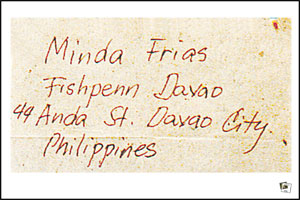 Minda Frias
Fishpenn Davao
49 Anda St. Davao City.
Philippines